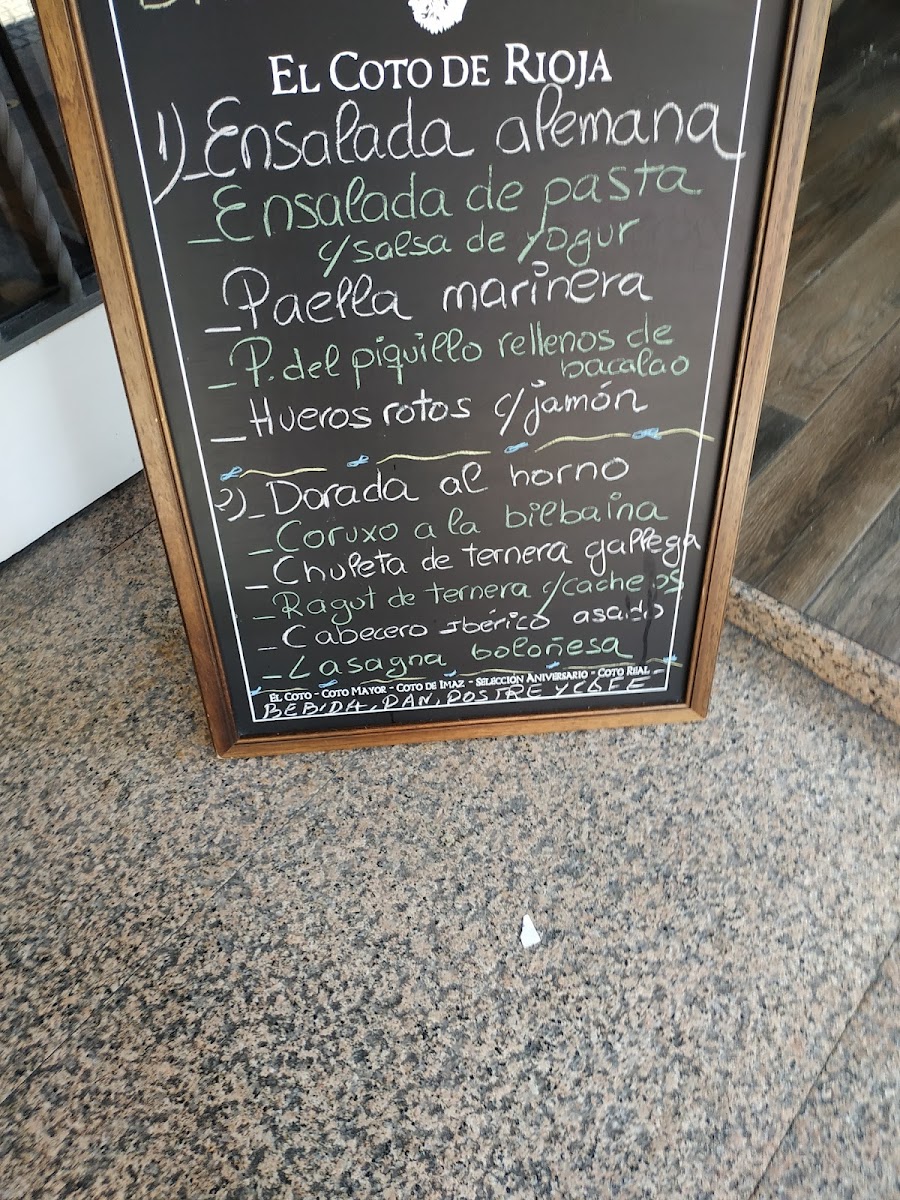 EL COTO DE RIOJA
1) - Ensalada alemana
- Ensalada de pasta
c/salsa de yogur
- Paella marinera
- P. del piquillo rellenos de
bacalao
- Hueros rotos c/jamón
2) - Dorada al horno
- Coruxo a la bilbaina
- Chuleta de ternera gallega
- Ragut de ternera c/cachelos
- Cabecero Ibérico asado
- Lasagna boloñesa
EL COTO - COTO MAYOR - COTO DE IMAZ - SELECCIÓN ANIVERSARIO - COTO REAL
BEBIDA, PAN, POSTRE Y CAFE -